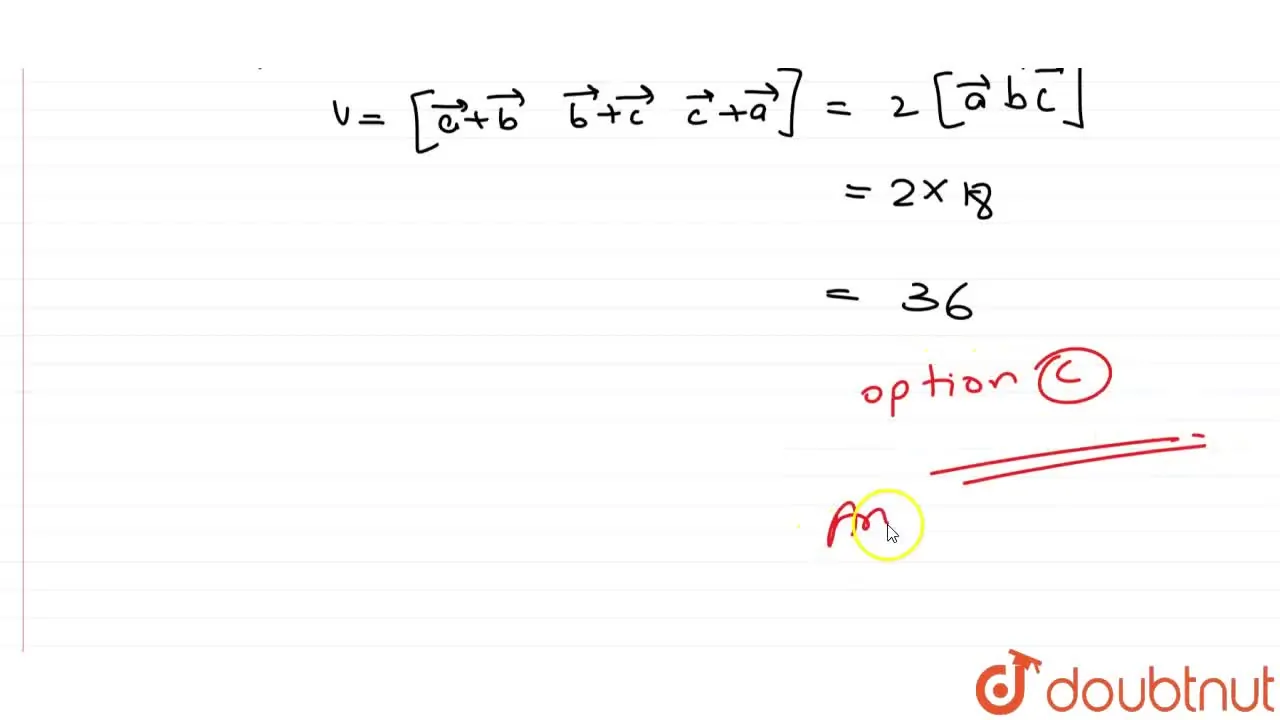 V = [a⃗+b⃗ b⃗+c⃗ c⃗+a⃗] = 2 [a⃗ b c⃗]
= 2 × 18
= 36
option C
An
doubtnut